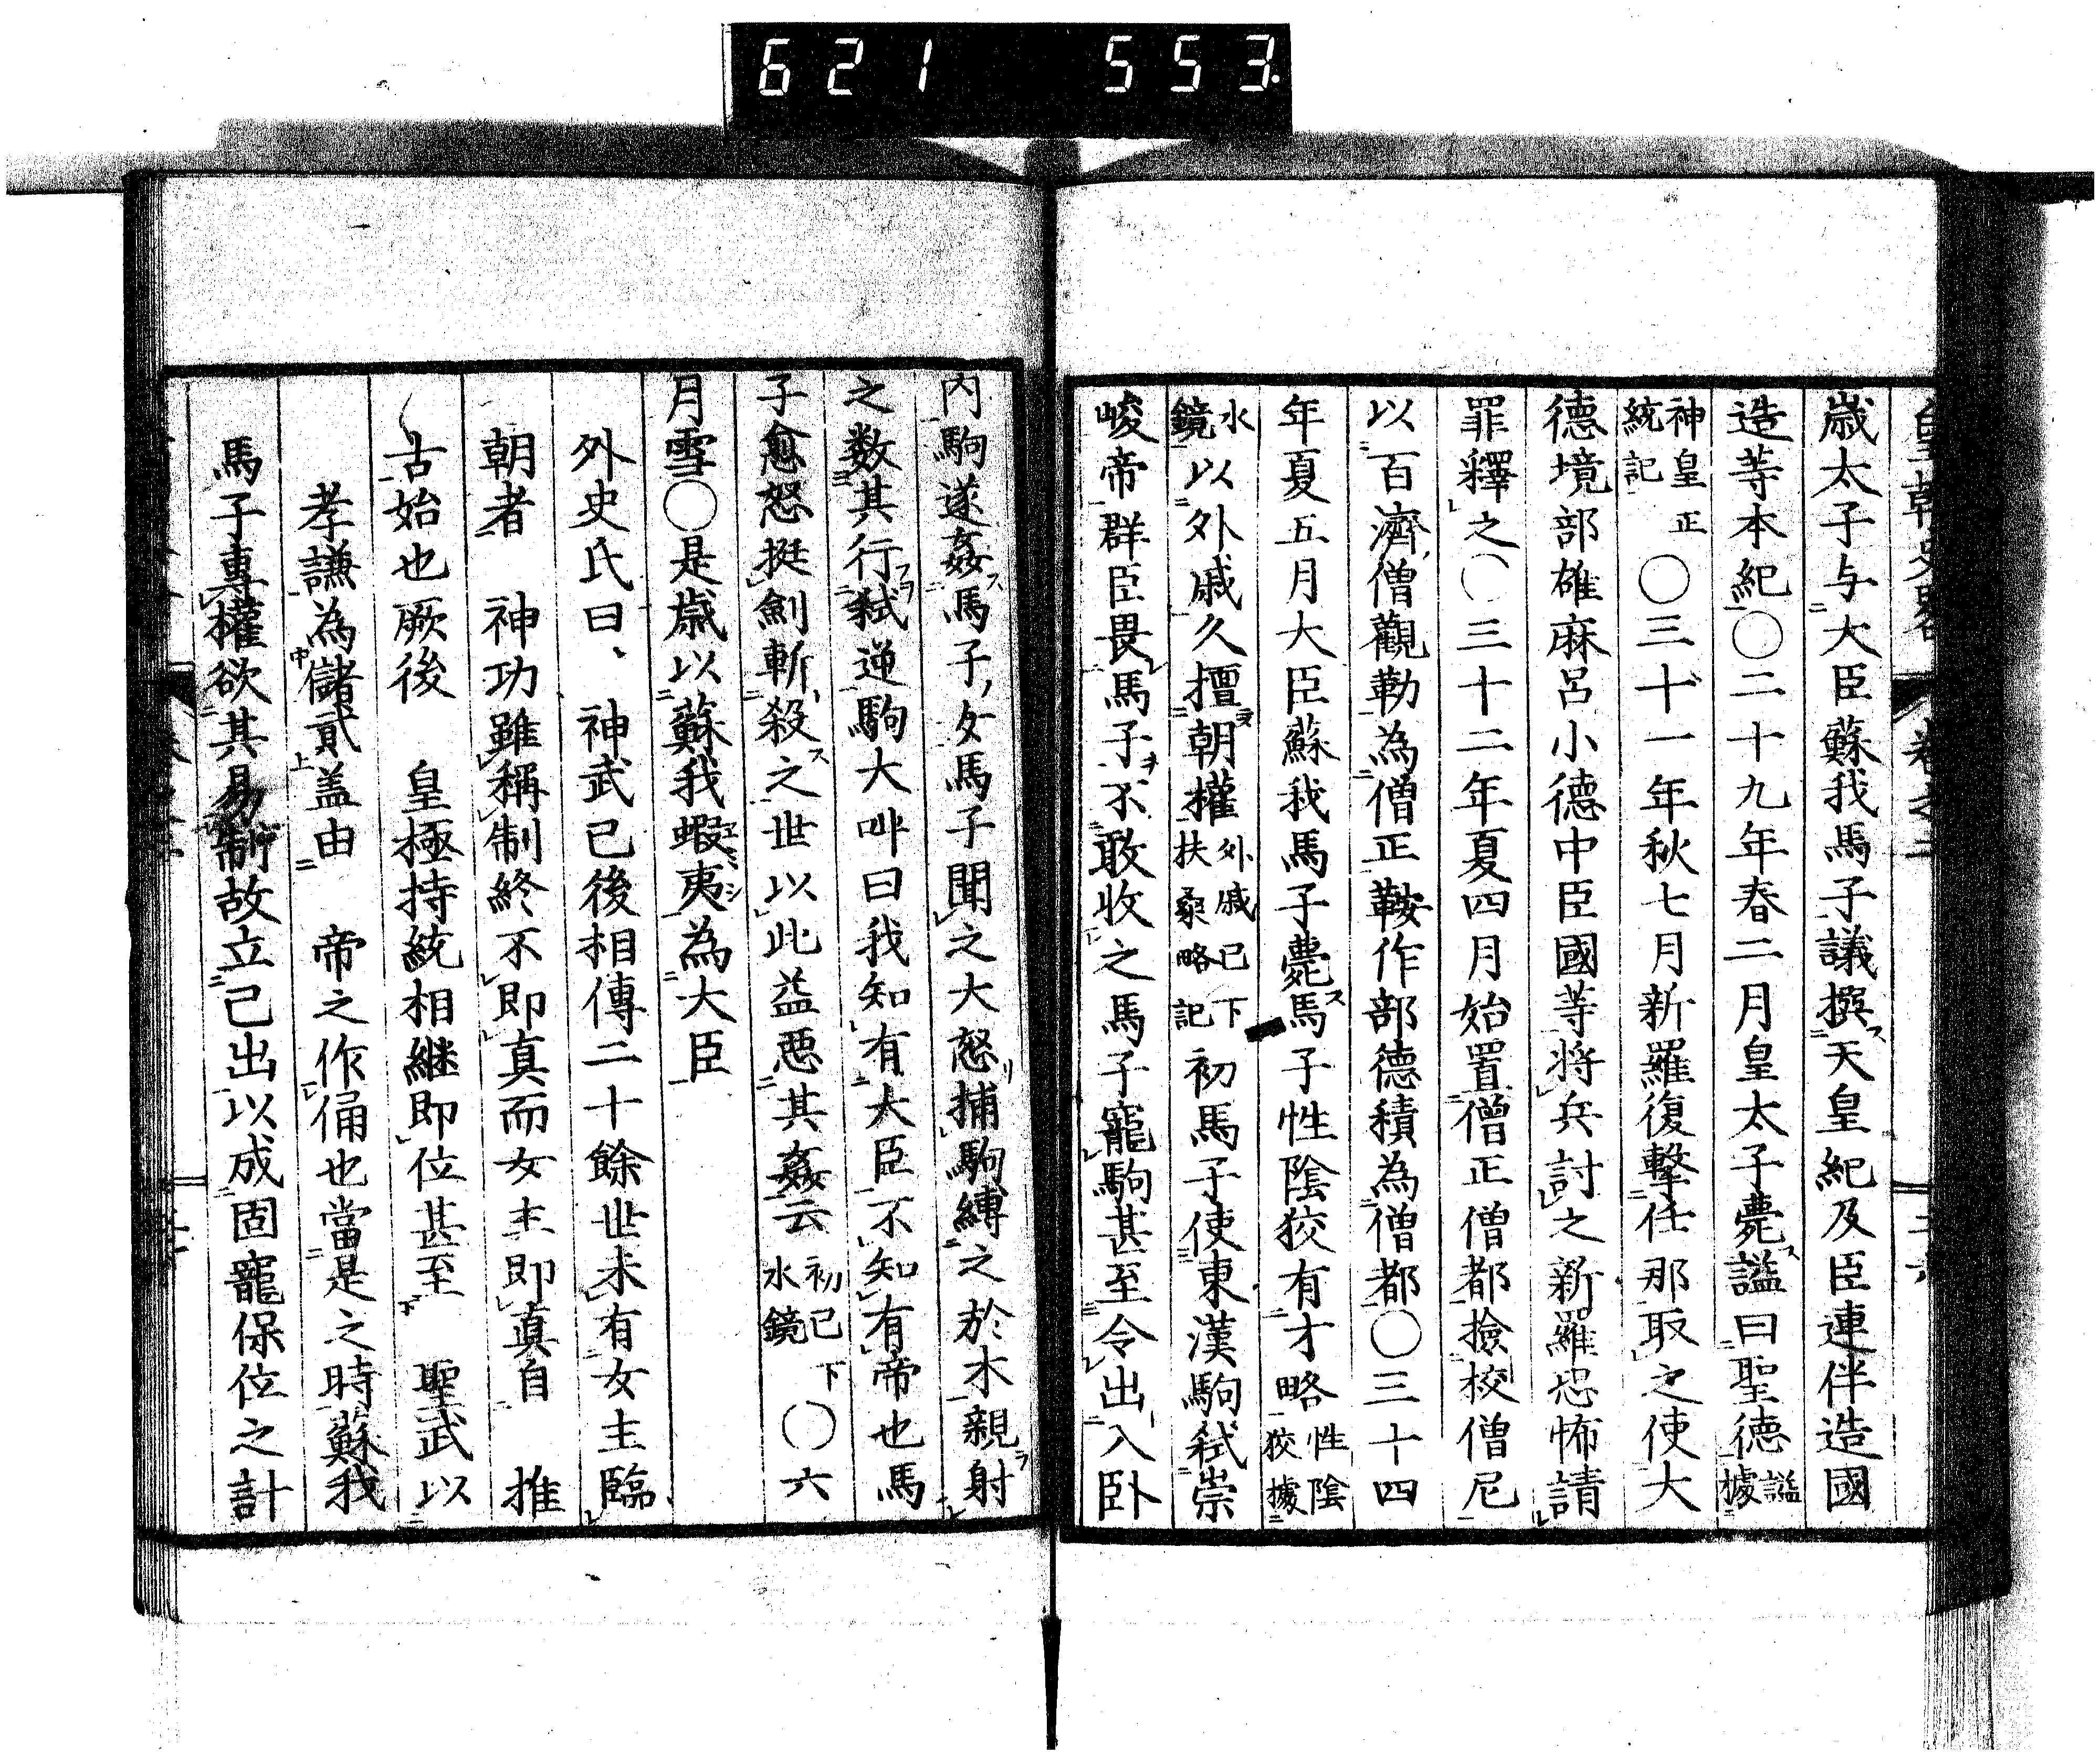 621 553
歳太子与大臣蘇我馬子議撰天皇紀及臣連伴造國
造等本紀〇二十九年春二月皇太子薨謚曰聖德謚據
神皇正統記〇三十一年秋七月新羅復擊任那取之使大
德境部雄麻呂小德中臣國等将兵討之新羅恐怖請
罪釋之〇三十二年夏四月始置僧正僧都撿校僧尼
以百濟僧觀勒為僧正鞍作部德積為僧都〇三十四
年夏五月大臣蘇我馬子薨馬子性陰狡有才略性陰狡據
水鏡以外戚久擅朝權外戚已下扶桑略記初馬子使東漢駒弑崇
峻帝群臣畏馬子不敢收之馬子寵駒甚至令出入卧
内駒遂姦馬子女馬子聞之大怒捕駒縛之於木親射
之数其行弑逆駒大呌曰我知有大臣不知有帝也馬
子愈怒挺劍斬殺之世以此益惡其姦云初已下水鏡〇六
月雪〇是歳以蘇我蝦夷為大臣
外史氏曰、神武已後相傳二十餘世未有女主臨
朝者 神功雖稱制終不即真而女主即真自 推
古始也厥後 皇極持統相継即位甚至 聖武以
孝謙為儲貳盖由 帝之作俑也當是之時蘇我
馬子專權欲其易制故立己出以成固寵保位之計